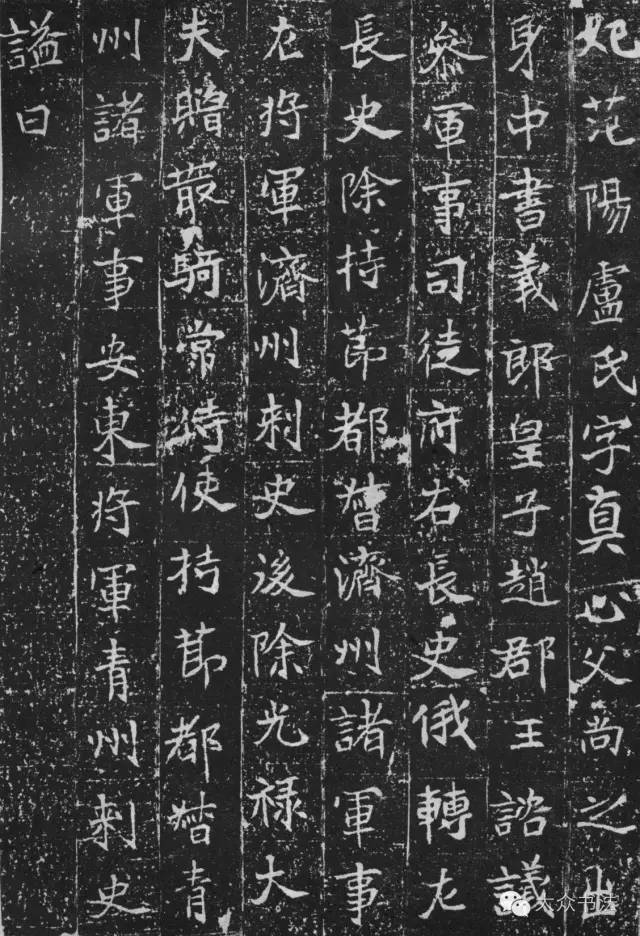 妃范陽盧氏字真心父尚之出
身中書義郎皇子趙郡王諮議
叅軍事司徒府右長史俄轉左
長史除持節都督濟州諸軍事
左将軍濟州刾史後除光禄大
夫贈散騎常侍使持節都督青
州諸軍事安東将軍青州刾史
謚曰
大众书法